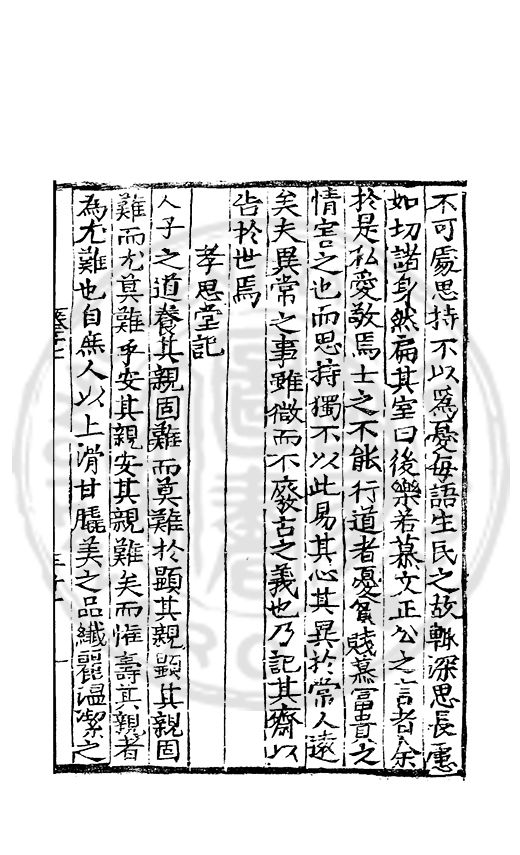 不可處思持不以爲憂每語生民之故輙深思長慮
如切諸身然扁其室曰後樂若慕文正公之言者余
於是私愛敬焉士之不能行道者憂貧賤慕冨貴之
情害之也而思持獨不以此易其心其異於常人遠
矣夫異常之事雖微而不廢古之義也乃記其齋以
告於世焉
孝思堂記
人子之道養其親固難而莫難於顯其親顯其親固
難而尤莫難乎安其親安其親難矣而惟壽其親者
為尤難也自庶人以上滑甘膬美之品纖麗温潔之